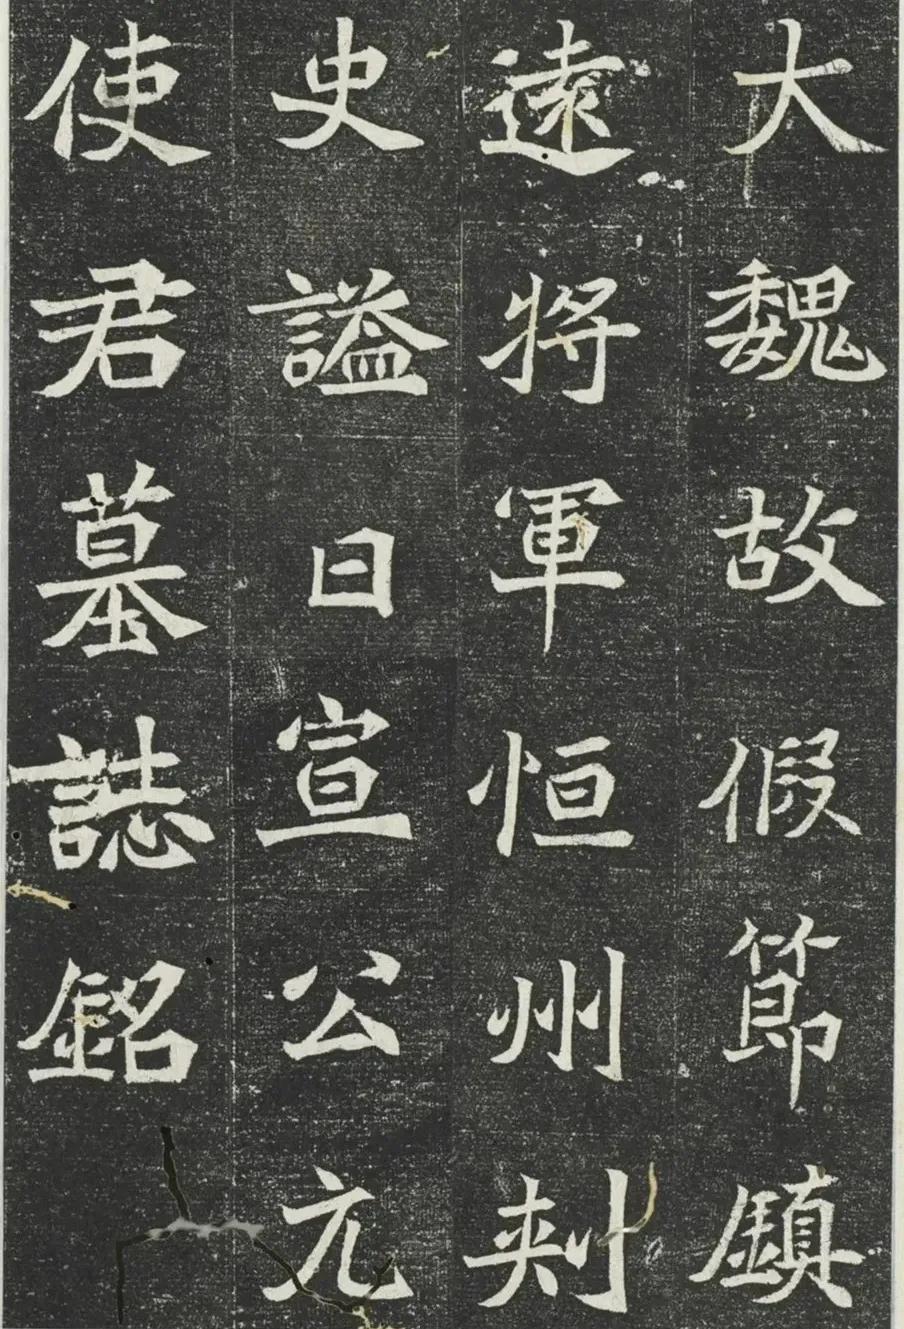 大魏故假節鎮
遠將軍恒州刾
史謚曰宣公亢
使君墓誌銘